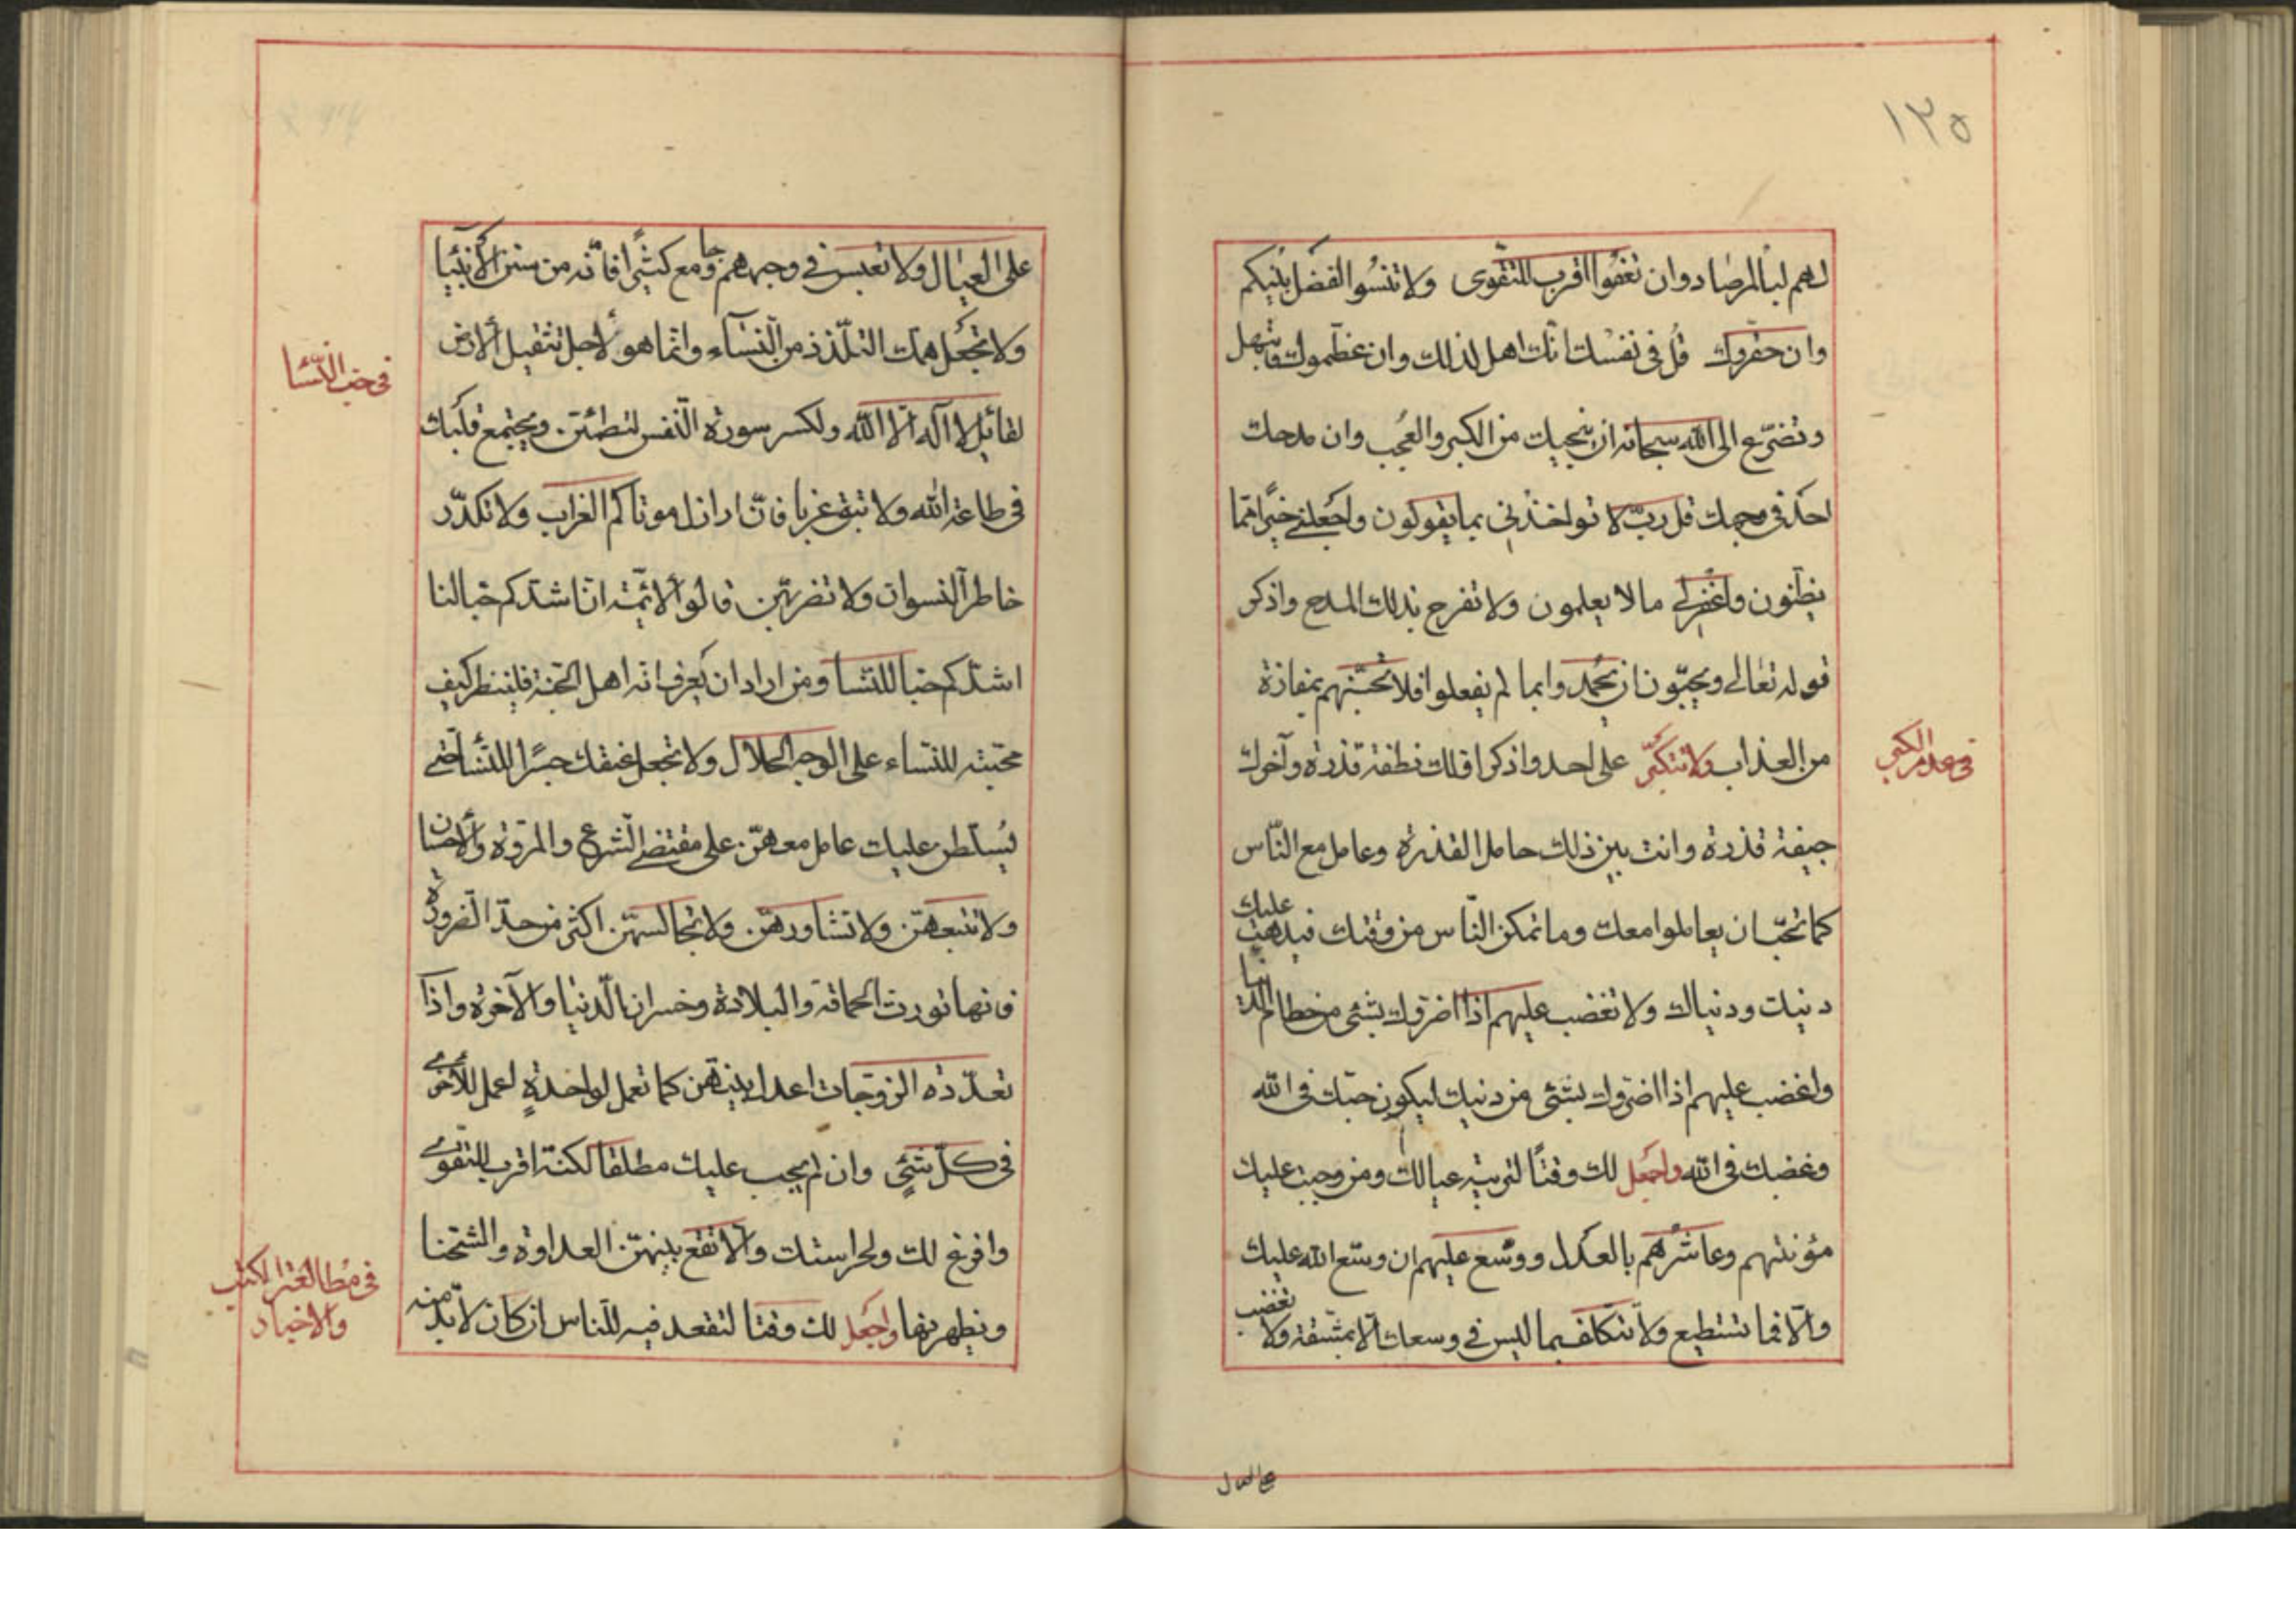 ١٢٥
لهم لبالمرصاد وان تعفوا اقرب للتقوى ولا تنسوا الفضل بينكم
وان حقروك قل في نفسك انك اهل لذلك وان عظموك فابتهل
وتضرّع الى الله سبحانه ان ينجيك من الكبر والعجب وان مدحك
احد في وجهك قل ربّ لا تواخذني بما يقولون واجعلني خيرًا مما
يظنون واغفر لي ما لا يعلمون ولا تفرح بذلك المدح واذكر
قوله تعالى ويحبّون ان يحمدوا بما لم يفعلوا فلا تحسبنهم بمفازة
من العذاب ولا تتكبّر على احد واذكر اولك نطفة قذرة وآخرك
في عدم الكبر
جيفة قذرة وانت بين ذلك حامل القذرة وعامل مع النّاس
كما تحبّ ان يعاملوا معك وما تمكن النّاس من وقتك فيذهب عليك
دنيك ودنياك ولا تغضب عليهم اذا اضروك بشئ من حطام الدنيا
واغضب عليهم اذا اضرّوك بشئ من دنيك ليكون حبّك في الله
وغضبك في الله واجعل لك وقتًا لتربية عيالك ومن وجبت عليك
مؤنتهم وعاشرهم بالعدل ووسّع عليهم ان وسّع الله عليك
والّا فما تستطيع ولا تتكلف بما ليس في وسعك الّا بمشقة ولا تغضب
على العيال
على العيال ولا تعبس في وجههم وجامع كثيرًا فانّه من سنن الانبيا
ولا تجعل همك التلّذذ من النساء وانما هو لاجل تثقيل الارض
في حبّ النّسا
لقائل لا آله الّا الله ولكسر سورة النّفس لتطمئن ويجتمع قلبك
في طاعة الله ولا تبق عزبا فانّ اراذل موتاكم العزاب ولا تكدّر
خاطر النسوان ولا تضربهن قالوا الائمّة انّا اشدكم حبا لنا
اشدّكم حبا للنسا ومن اراد ان يعرف انه اهل الجنة فلينظر كيف
محبته للنساء على الوجه الحلال ولا تجعل عنقك جسرًا للنسا حتى
يسلطن عليك عامل معهنّ على مقتضى الشرع والمروة والاحسان
ولا تتبعهنّ ولا تشاورهنّ ولا تجالسهنّ اكثر من حدّ الضرورة
فانها تورث الحماقة والبلادة وخسران الدنيا والآخرة واذا
تعدّدة الزوجات اعدل بينهن كما تعمل لواحدةٍ اعمل للاخرى
في كلّ شئٍ وان لم يجب عليك مطلقا لكنّه اقرب للتقوى
وافرغ لك ولحراستك ولا تقع بينهنّ العداوة والشحنا
في مطالعة الكتب
والاخبار
وتظهر بها واجعل لك وقتا لتقعد فيه للناس ان كان لا بدّ منه